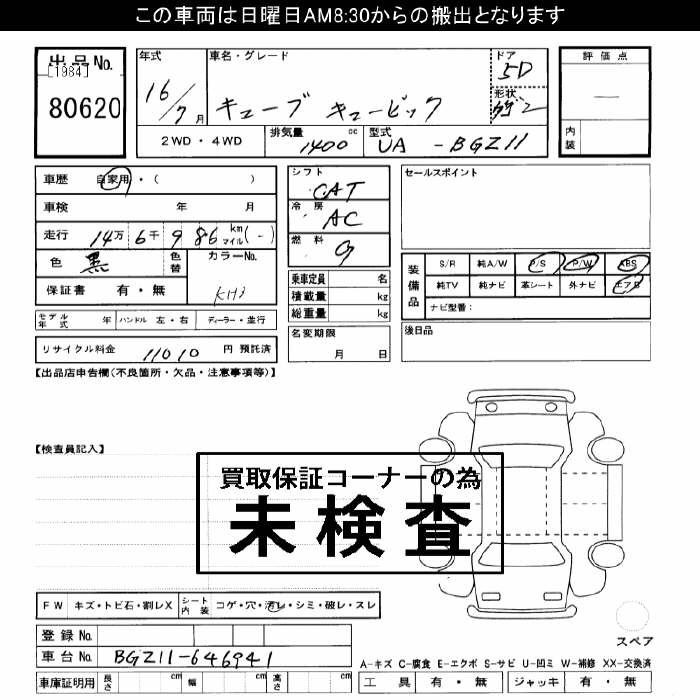 この車両は日曜日AM8:30からの搬出となります
出品No. [1984] 80620
年式 16/7月
車名・グレード キューブ キュービック
ドア 5D
形状
評価点 —
内装
2WD・4WD 排気量 1400cc 型式 UA-BGZ11
車歴 自家用・( )
車検 年 月
走行 14万6千986km マイル(-)
色 黒 色替 カラーNo. KH3
保証書 有・無
モデル年式 年 ハンドル 左・右 ディーラー・並行
リサイクル料金 11010円預託済
シフト CAT
冷房 AC
燃料 G
乗車定員 名
積載量 kg
総重量 kg
名変期限 月 日
セールスポイント
装備品 S/R 純A/W P/S P/W ABS
純TV 純ナビ 革シート 外ナビ エアB
ナビ型番:
後日品
【出品店申告欄(不良箇所・欠品・注意事項等)】
【検査員記入】
買取保証コーナーの為
未検査
FW キズ・トビ石・割レX シート内装 コゲ・穴・汚レ・シミ・破レ・スレ
登録No.
車台No. BGZ11-646941
車庫証明用 長さ cm 幅 cm 高さ cm
スペア
A-キズ C-腐食 E-エクボ S-サビ U-凹ミ W-補修 XX-交換済
工具 有・無 ジャッキ 有・無